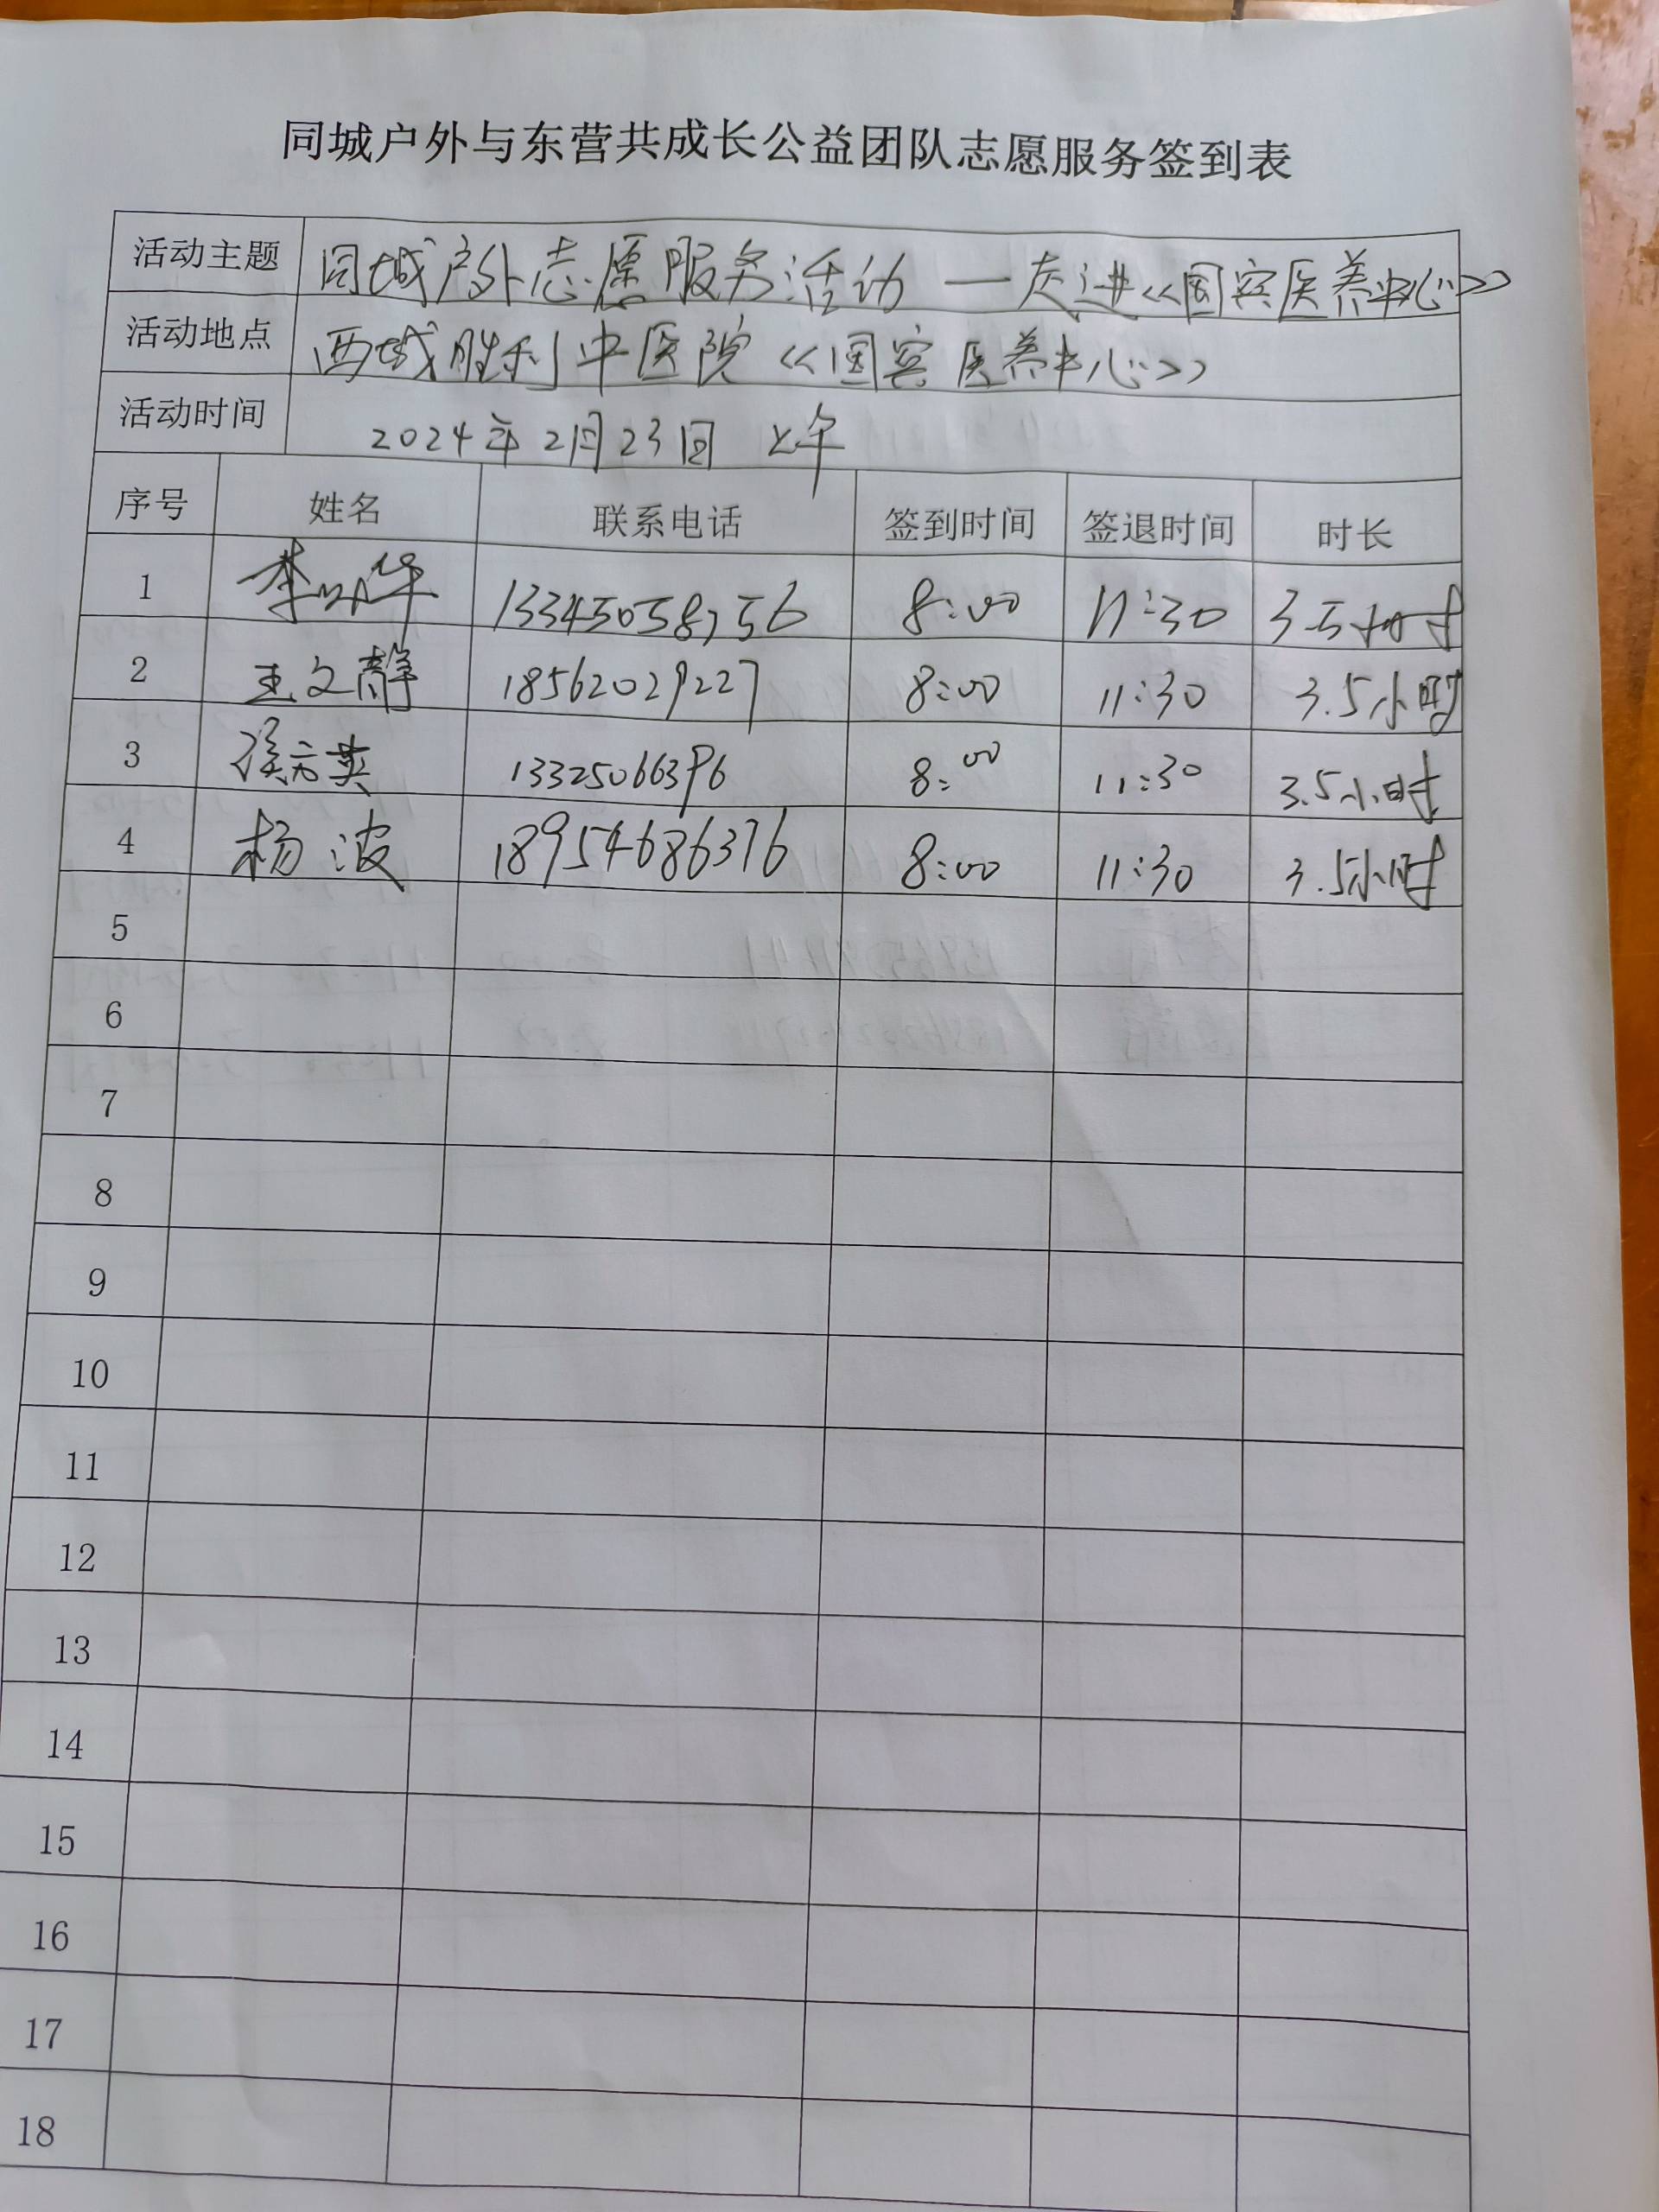 同城户外与东营共成长公益团队志愿服务签到表
活动主题 同城户外志愿服务活动 — 走进《国宾医养中心》
活动地点 西城胜利中医院《国宾医养中心》
活动时间 2024年2月23日 上午
序号 姓名 联系电话 签到时间 签退时间 时长
1 李 华 13345058756 8:00 11:30 3.5小时
2 王文静 18562029227 8:00 11:30 3.5小时
3 英 13325066396 8:00 11:30 3.5小时
4 杨波 18954686376 8:00 11:30 3.5小时
5
6
7
8
9
10
11
12
13
14
15
16
17
18